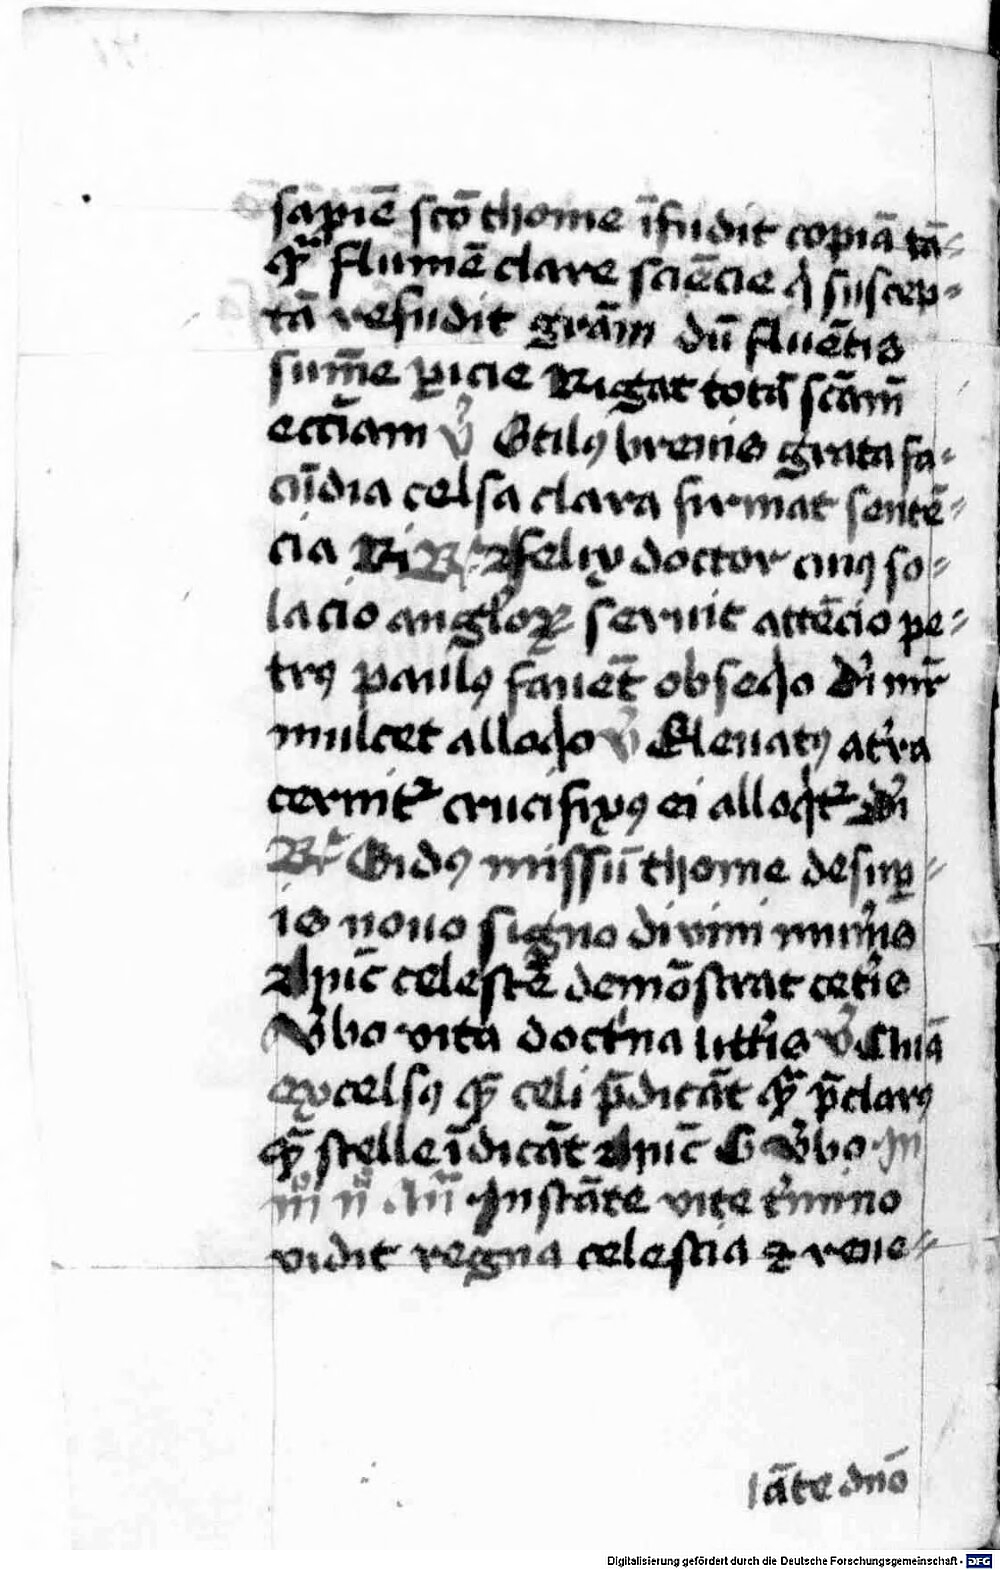 sapiē scō thome īfudit copiā tā⸗
qꝫ flumē clare sciēcie q̇ suscep⸗
tā refudit grām dū fluētis
sum̄e ꝑicie Rigat totā scām̄
eccīam v̓ Stilꝯ breuis grata fa⸗
cūdia celsa clara firmat sentē⸗
cia Ri Rͥ Felix doctor cuiꝯ so⸗
lacio angloꝝ seruit attēcio pe⸗
trꝯ paulꝯ fauēt obseqo dī mr̄
mulcet alloqo v̓ Eleuatꝯ a tr̓ra
cernit᷑ crucifixꝯ ei alloqͥt᷑ dī
Rͥ Sidꝯ missū thome desup⸗
is nouo signo diuini mun̓is
Apic̄ celestē demōstrat cet̓is
v̓bo vita doctͥna litt̓is v̓ Chīā
excelsꝯ qꝫ celi p̄dicāt qꝫ p̄clarꝯ
qꝫ stelle īdicāt Apic̄ G v̓bo In
iijͦ nͦ Añ Instāte vite t̓mino
vidit regna celestia ⁊ reue⸗
lāte dnō
Digitalisierung gefördert durch die Deutsche Forschungsgemeinschaft - DFG